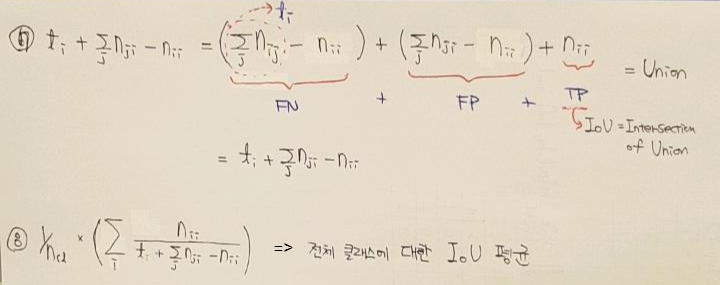 tᵢ
⑦ tᵢ + Σⱼ nⱼᵢ − nᵢᵢ = (Σⱼ nᵢⱼ − nᵢᵢ) + (Σⱼ nⱼᵢ − nᵢᵢ) + nᵢᵢ = Union
FN + FP + TP
IoU = Intersection
of Union
= tᵢ + Σⱼ nⱼᵢ − nᵢᵢ
⑧ 1/n_cl × (Σᵢ nᵢᵢ / (tᵢ + Σⱼ nⱼᵢ − nᵢᵢ)) => 전체 클래스에 대한 IoU 평균